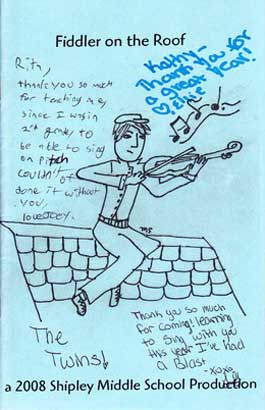 Fiddler on the Roof
Kathy-
Thank you for
a great
year!
Ellie
Rita,
thank you so much
for teaching me,
since I was in
2nd grade, to
be able to sing
on pitch
couldn't of
done it without
you,
love Joey.
MS
Thank you so much
for coming! learning
to sing with you
this year I've had
a Blast
xoxo
The
Twins!
a 2008 Shipley Middle School Production